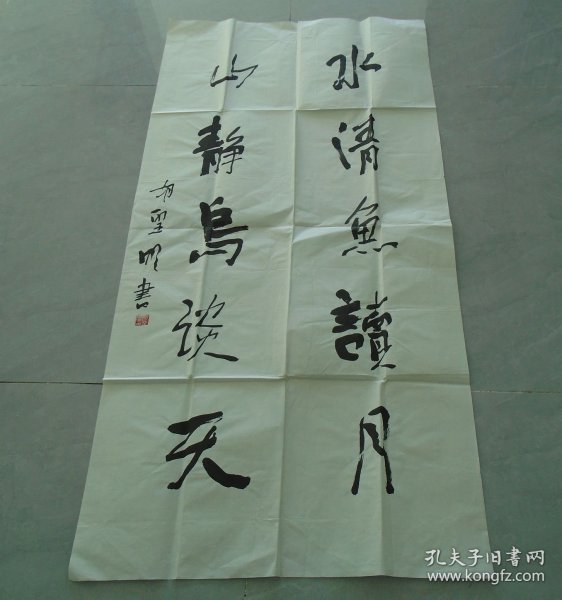 水清魚讀月
山靜鳥談天
聖明書
孔夫子旧書网
www.kongfz.com